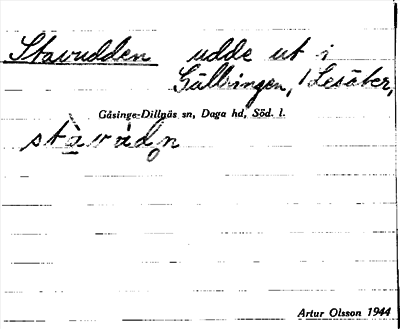 Stavudden udde ut i
Gällringen, Lesäter,
Gåsinge-Dillnäs sn, Daga hd, Söd. l.
stàvùdn
Artur Olsson 1944